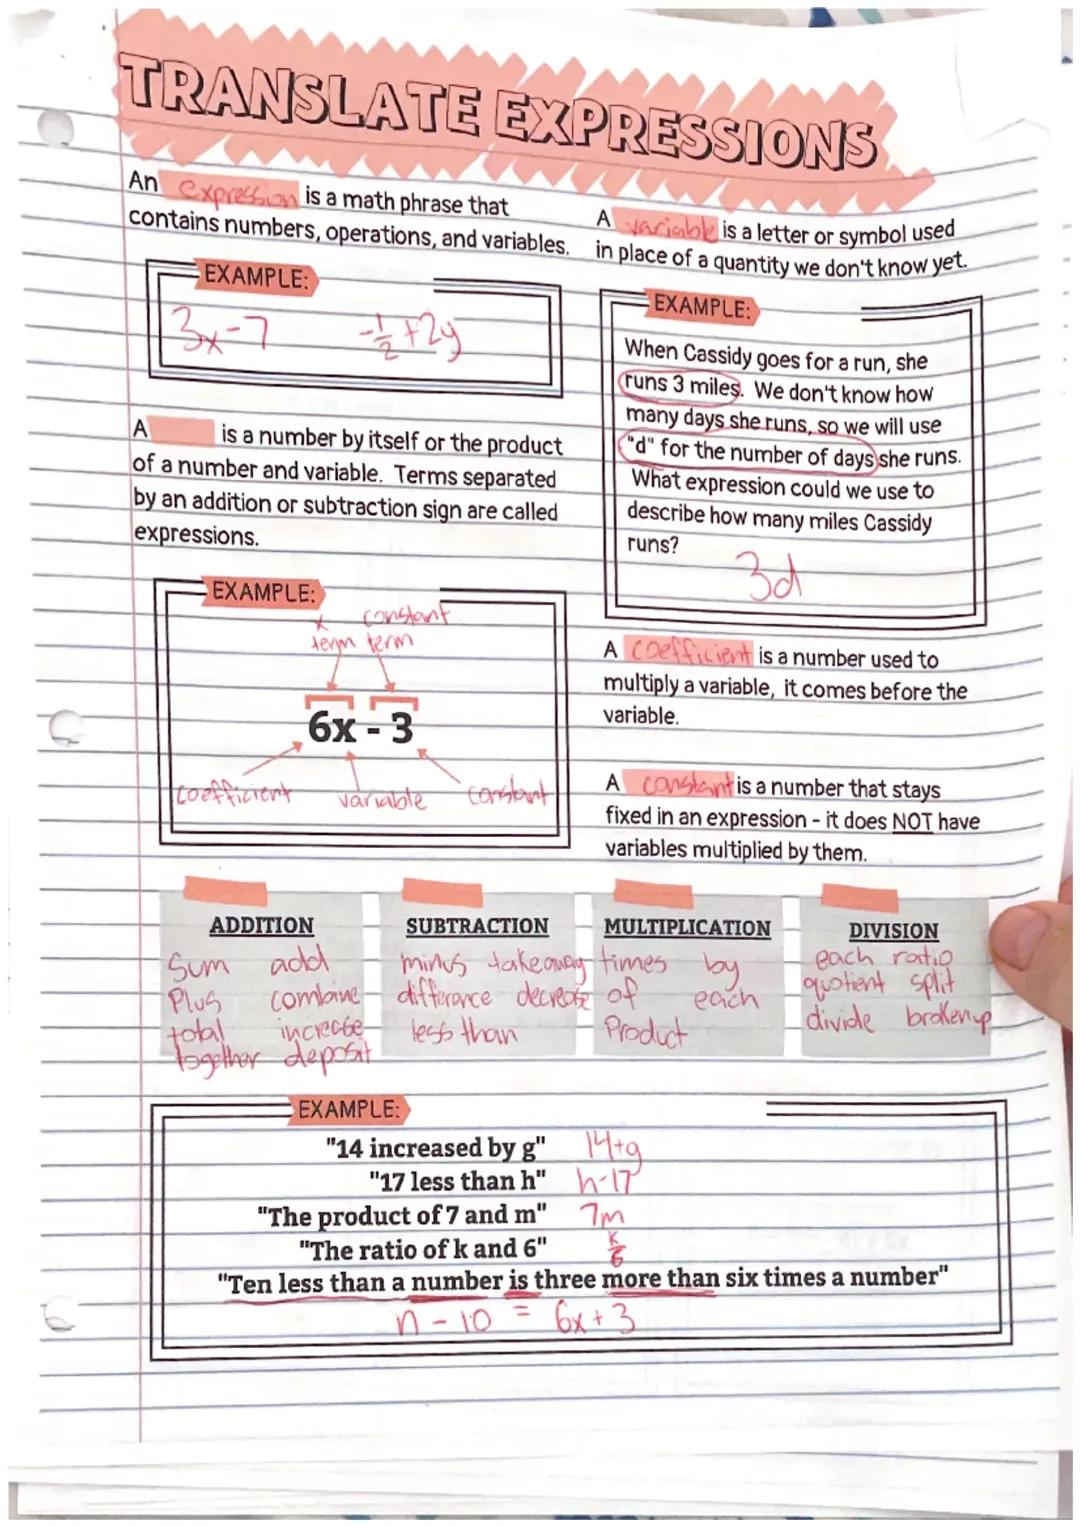 TRANSLATE EXPRESSIONS
An expression is a math phrase that
contains numbers, operations, and variables.
EXAMPLE:
3x-7 -1/2+2y
A is a number by itself or the product
of a number and variable. Terms separated
by an addition or subtraction sign are called
expressions.
EXAMPLE:
x constant
term term
6x - 3
coefficient variable constant
A variable is a letter or symbol used
in place of a quantity we don't know yet.
EXAMPLE:
When Cassidy goes for a run, she
runs 3 miles. We don't know how
many days she runs, so we will use
"d" for the number of days she runs.
What expression could we use to
describe how many miles Cassidy
runs?
3d
A coefficient is a number used to
multiply a variable, it comes before the
variable.
A constant is a number that stays
fixed in an expression - it does NOT have
variables multiplied by them.
ADDITION
Sum add
Plus combine
total increase
Together deposit
SUBTRACTION
minus takeaway
difference decrease
less than
MULTIPLICATION
times by
of each
Product
DIVISION
each ratio
quotient split
divide broken up
EXAMPLE:
"14 increased by g" 14+g
"17 less than h" h-17
"The product of 7 and m" 7m
"The ratio of k and 6" k/6
"Ten less than a number is three more than six times a number"
n - 10 = 6x+3